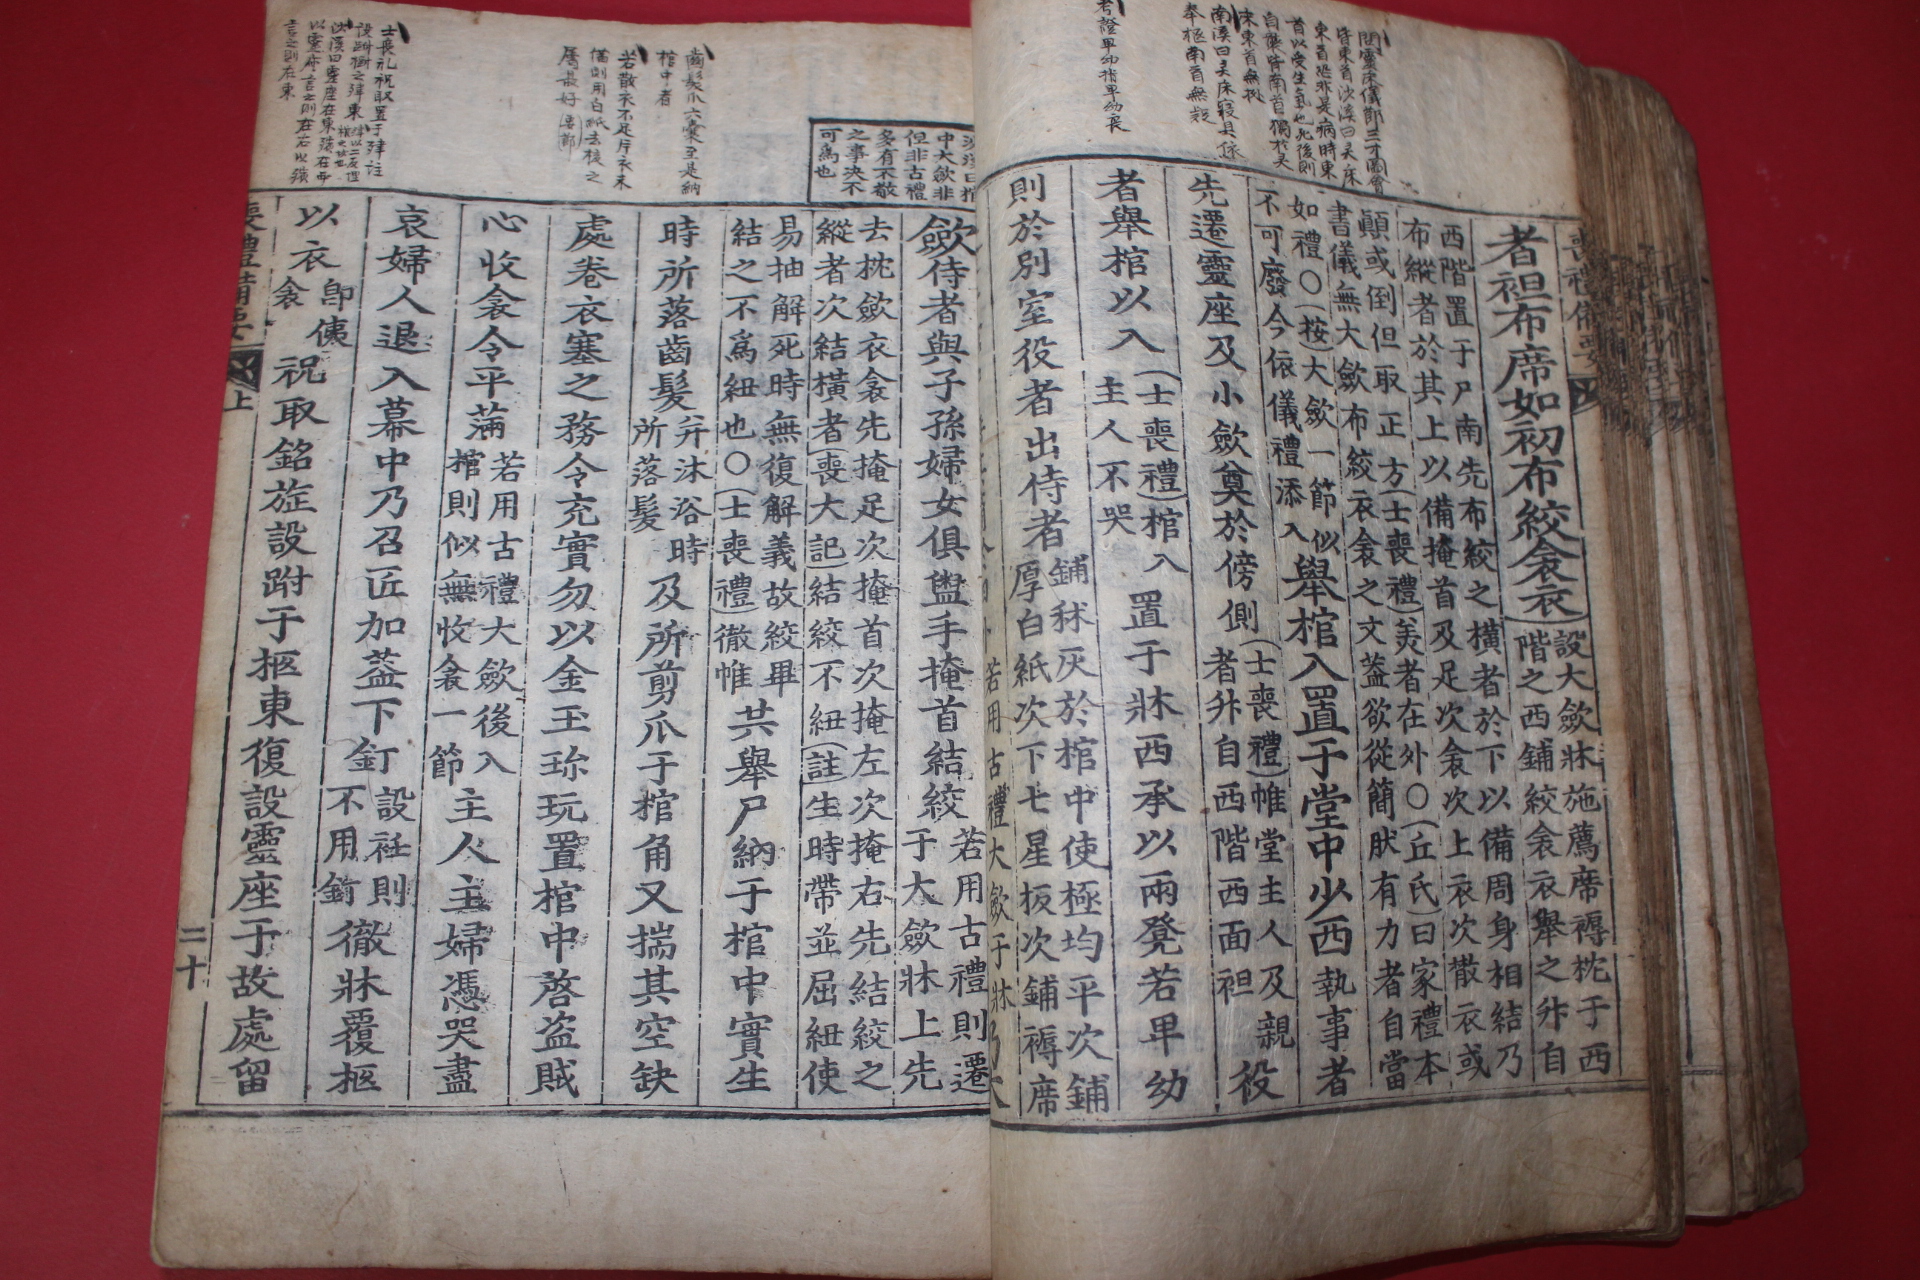 喪禮備要
者袒布席如初布絞衾衣(設大斂牀施薦席褥枕于西
階之西鋪絞衾衣擧之升自
西階置于尸南先布絞之橫者於下以備周身相結乃
布縱者於其上以備掩首及足次衾次上衣次散衣或
顚或倒但取正方(士喪禮)美者在外○(丘氏)曰家禮本
書儀無大斂布絞衣衾之文蓋欲從簡肰有力者自當
如禮○(按)大斂一節似
不可廢今依儀禮添入
擧棺入置于堂中少西執事者
先遷靈座及小斂奠於傍側
(士喪禮)帷堂主人及親
者升自西階西面袒
役
者擧棺以入
(士喪禮)棺入
主人不哭
置于牀西承以兩凳若卑幼
則於別室役者出侍者
鋪秫灰於棺中使極均平次鋪
厚白紙次下七星板次鋪褥席
若用古禮大斂于牀乃大
斂侍者與子孫婦女俱盥手掩首結絞
若用古禮則遷
于大斂牀上先
去枕斂衣衾先掩足次掩首次掩左次掩右先結絞之
縱者次結橫者(喪大記)結絞不紐(註)生時帶並屈紐使
易抽解死時無復解義故絞畢
結之不爲紐也○(士喪禮)徹帷
共擧尸納于棺中實生
時所落齒髮
幷沐浴時
所落髮
及所剪爪于棺角又揣其空缺
處卷衣塞之務令充實勿以金玉珎玩置棺中啓盜賊
心收衾令平滿
若用古禮大斂後入
棺則似無收衾一節
主人主婦憑哭盡
哀婦人退入幕中乃召匠加蓋下釘
設衽則
不用釘
徹牀覆柩
以衣
卽侇
衾
祝取銘旌設跗于柩東復設靈座于故處留
喪禮備要
上
二十
沙溪曰棺
中大斂非
但非古禮
多有不敬
之事決不
可爲也
齒髮爪六囊至是納
棺中者
若散衣不足片衣末
備則用白紙去棱之
屬最好